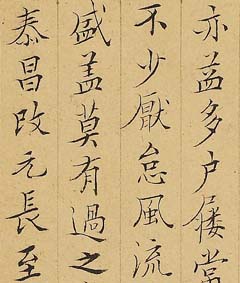 亦益多户屦常
不少厭怠風流
盛盖莫有過之
泰昌改元長至